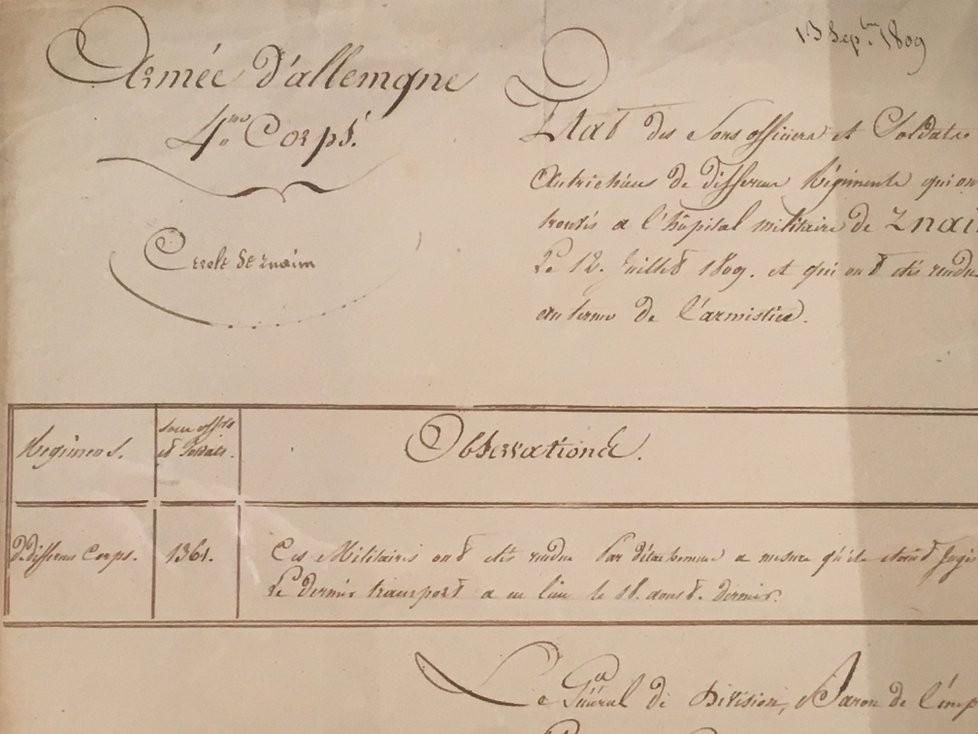 13 Sep.bre 1809
Armée d'allemgne
4.me Corps.
Cercle de znaim
Etat des Sous officiers et Soldats
Autrichiens de differens Régiments qui on
trouvés a l'hôpital militaire de Znai
Le 12. Juillet 1809. et qui ont étés rendu
au terme de l'armistice.
Regimens.
sous offrs
et Soldats.
Observations.
De differens Corps.
1361.
Ces Militaires ont étés rendus par détachemens a mesure qu'ils étaient jugé
Le dernier transport a eu lieu le 18. aoust. dernier.
Le Général de Division, Baron de l'Emp